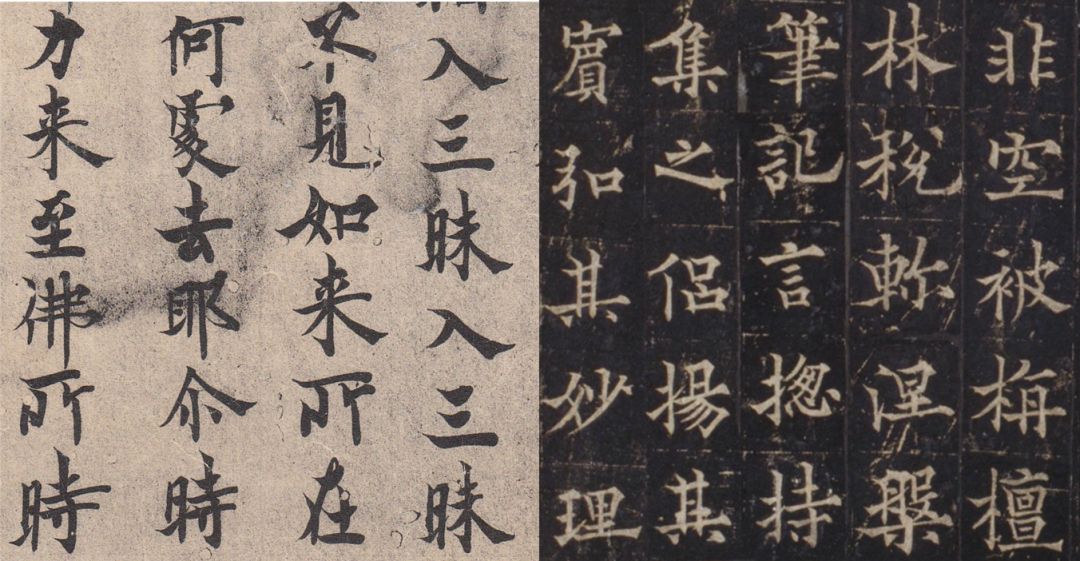 入三昧入三昧
不見如来所在
何處去耶尒時
力来至佛所時
非空被栴檀
林稅軫涅槃
筆記言揔持
集之侶揚其
實弘其妙理